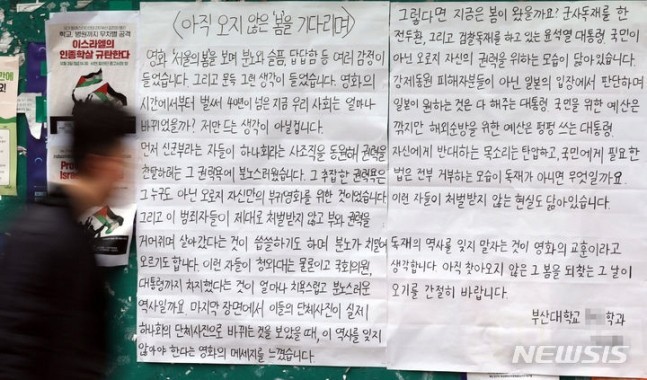 학교, 병원까지 무차별 공격
이스라엘의
인종학살 규탄한다
<아직 오지 않은 '봄'을 기다리며>
영화 '서울의 봄'을 보며 분노와 슬픔, 답답함 등 여러 감정이
들었습니다. 그리고 문득 그런 생각이 들었습니다. 영화의
시간에서부터 벌써 44년이 넘은 지금 우리 사회는 얼마나
바뀌었을까? 저만 드는 생각이 아닐겁니다.
먼저 신군부라는 자들이 하나회라는 사조직을 동원해 권력을
찬탈하려는 그 권력욕에 분노스러웠습니다. 그 추잡한 권력욕은
그 누구도 아닌 오로지 자신만의 부귀영화를 위한 것이었습니다.
그리고 이 범죄자들이 제대로 처벌받지 않고 부와 권력을
거머쥐며 살아갔다는 것이 씁쓸하기도 하며 분노가 치밀어
오르기도 합니다. 이런 자들이 청와대는 물론이고 국회의원,
대통령까지 차지했다는 것이 얼마나 치욕스럽고 분노스러운
역사일까요. 마지막 장면에서 이들의 단체사진이 실제
하나회의 단체사진으로 바뀌는 것을 보았을 때, 이 역사를 잊지
않아야 한다는 영화의 메세지를 느꼈습니다.
그렇다면 지금은 봄이 왔을까요? 군사독재를 한
전두환, 그리고 검찰독재를 하고 있는 윤석열 대통령. 국민이
아닌 오로지 자신의 권력을 위하는 모습이 닮아 있습니다.
강제동원 피해자분들이 아닌 일본의 입장에서 판단하며
일본이 원하는 것은 다 해주는 대통령. 국민을 위한 예산은
깎지만 해외순방을 위한 예산은 펑펑 쓰는 대통령.
자신에게 반대하는 목소리는 탄압하고, 국민에게 필요한
법은 전부 거부하는 모습이 독재가 아니면 무엇일까요.
이런 자들이 처벌받지 않는 현실도 닮아있습니다.
독재의 역사를 잊지 말라는 것이 영화의 교훈이라고
생각합니다. 아직 찾아오지 않은 그 봄을 되찾는 그 날이
오기를 간절히 바랍니다.
부산대학교 학과
NEWSIS